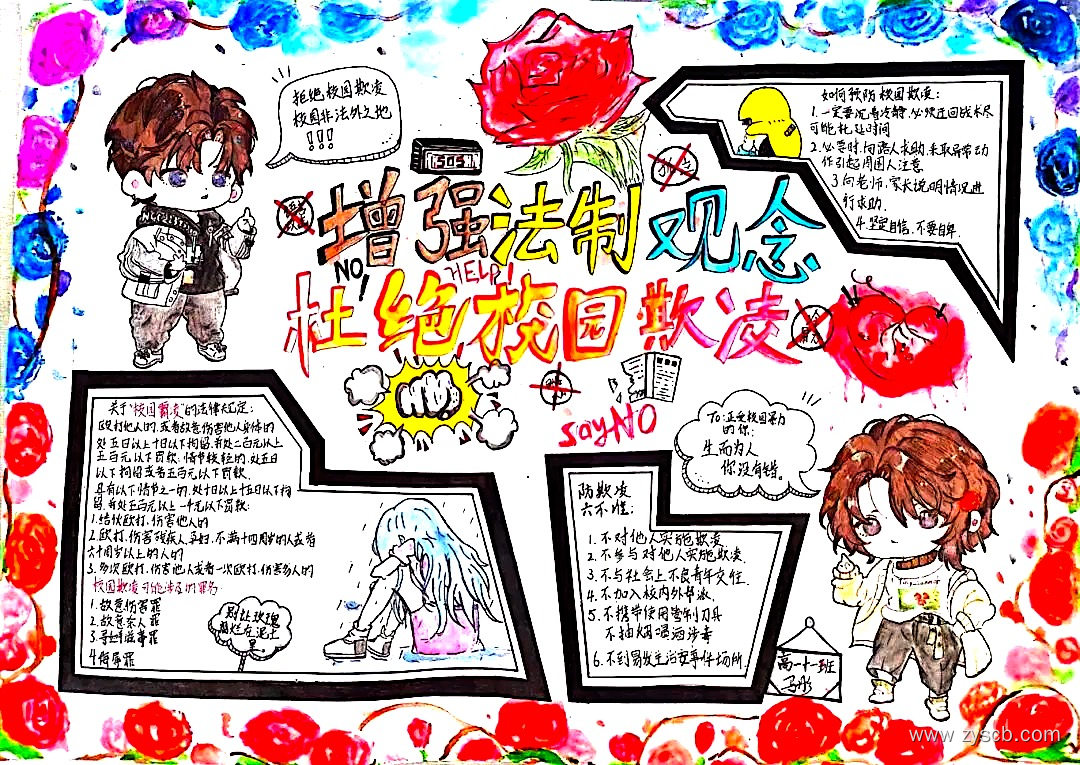 拒绝校园欺凌
校园非法外之地
!!!
增强法制观念
NO!
HELP!
杜绝校园欺凌
say NO
如何预防校园欺凌:
1.一定要沉着冷静.必须迂回战术尽
可能拖延时间
2.必要时,向路人求助,采取异常动
作引起周围人注意
3.向老师,家长说明情况进
行求助.
4.坚定自信.不要自卑.
关于"校园霸凌"的法律规定:
殴打他人的,或者故意伤害他人身体的
处五日以上十日以下拘留,并处二百元以上
五百元以下罚款.情节较轻的,处五日
以下拘留或者五百元以下罚款.
具有以下情节之一的,处十日以上十五日以下拘
留,并处五百元以上一千元以下罚款:
1.结伙殴打,伤害他人的
2.殴打,伤害残疾人,孕妇,不满十四周岁的人或者
六十周岁以上的人的
3.多次殴打,伤害他人或者一次殴打,伤害多人的
校园欺凌可能涉及的罪名
1.故意伤害罪
2.故意杀人罪
3.寻衅滋事罪
4.侮辱罪
别让玫瑰
腐烂在泥土
To:正受校园暴力
的你:
生而为人
你没有错.
防欺凌
六不准:
1.不对他人实施欺凌
2.不参与对他人实施欺凌.
3.不与社会上不良青年交往.
4.不加入校内外帮派.
5.不携带使用管制刀具
不抽烟喝酒涉毒
6.不到易发生治安事件场所.
高一十一班
www.zyscb.com